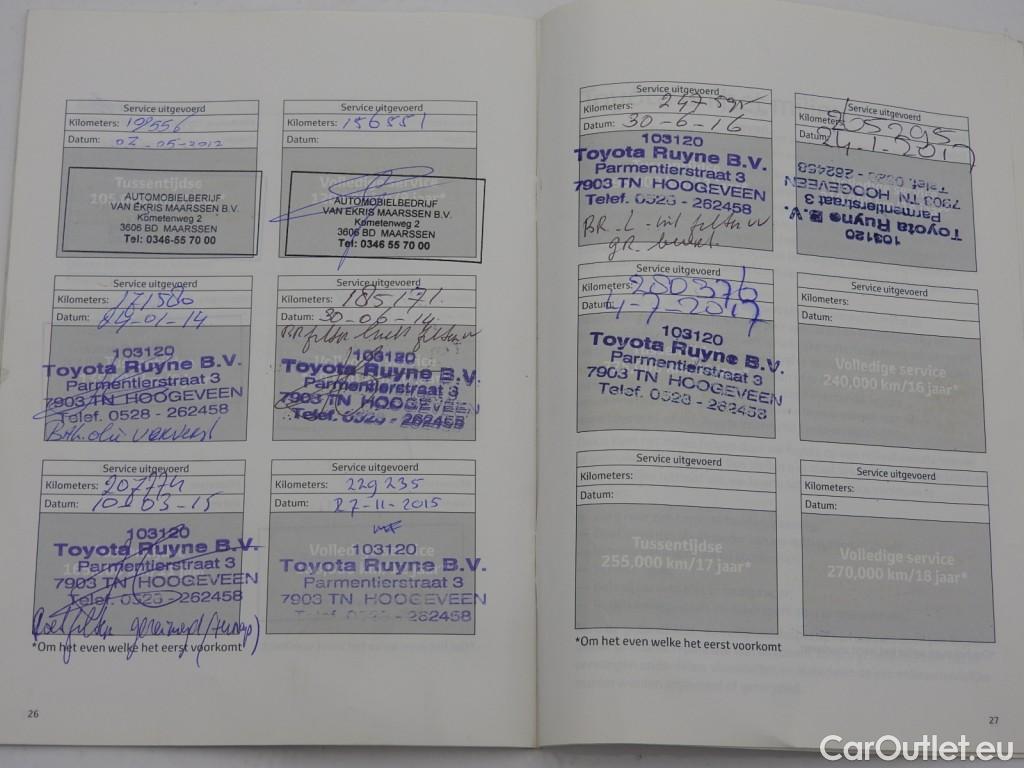 Service uitgevoerd
Kilometers:
Datum: 02-05-2012
Tussentijdse
AUTOMOBIELBERIJF
VAN EKRIS MAARSSEN B.V.
Kometenweg 2
3606 BD MAARSSEN
Tel: 0346-55 70 00
Service uitgevoerd
Kilometers: 156551
Datum:
AUTOMOBIELBEDRIJF
VAN EKRIS MAARSSEN B.V.
Kometenweg 2
3606 BD MAARSSEN
Tel: 0346 55 70 00
Service uitgevoerd
Kilometers: 171586
Datum: 24-01-14
103120
Toyota Ruyne B.V.
Parmentierstraat 3
7903 TN HOOGEVEEN
Telef. 0528 - 262458
Service uitgevoerd
Kilometers: 185171
Datum: 30-06-14
103120
Toyota Ruyne B.V.
Parmentierstraat 3
7903 TN HOOGEVEEN
Telef. 0528 - 262458
Service uitgevoerd
Kilometers: 207774
Datum: 10-03-15
103120
Toyota Ruyne B.V.
Parmentierstraat 3
7903 TN HOOGEVEEN
Telef. 0528 - 262458
Service uitgevoerd
Kilometers: 229235
Datum: 27-11-2015
Volledige service
103120
Toyota Ruyne B.V.
Parmentierstraat 3
7903 TN HOOGEVEEN
Telef. 0528 - 262458
*Om het even welke het eerst voorkomt
26
Service uitgevoerd
Kilometers:
Datum: 30-6-16
103120
Toyota Ruyne B.V.
Parmentierstraat 3
7903 TN HOOGEVEEN
Telef. 0528 - 262458
Service uitgevoerd
Kilometers:
Datum: 24-1-2017
103120
Toyota Ruyne B.V.
Parmentierstraat 3
7903 TN HOOGEVEEN
Telef. 0528 - 262458
Service uitgevoerd
Kilometers: 280376
Datum: 4-7-2017
103120
Toyota Ruyne B.V.
Parmentierstraat 3
7903 TN HOOGEVEEN
Telef. 0528 - 262458
Service uitgevoerd
Kilometers:
Datum:
Volledige service
240,000 km/16 jaar*
Service uitgevoerd
Kilometers:
Datum:
Tussentijdse
255,000 km/17 jaar*
Service uitgevoerd
Kilometers:
Datum:
Volledige service
270,000 km/18 jaar*
*Om het even welke het eerst voorkomt
27
CarOutlet.eu